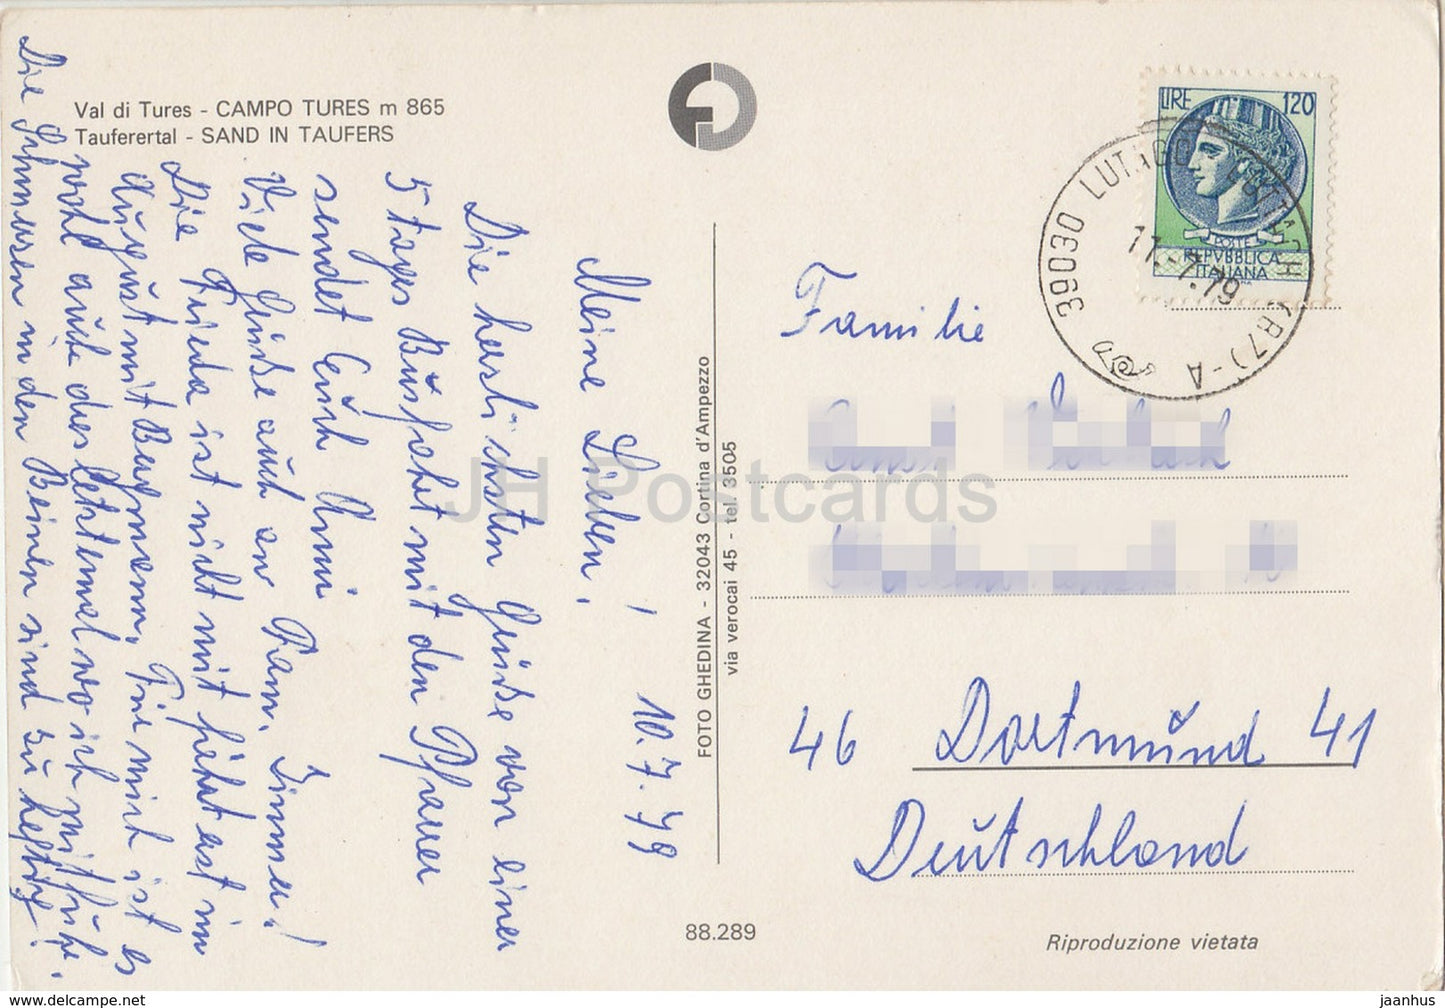 Val di Tures - CAMPO TURES m 865
Tauferertal - SAND IN TAUFERS
10.7.79
Meine Lieben!
Die herzlichsten Grüße von einer
5 tages Bußfahrt mit den Pfarrer
sendet Euch Anni
Viele Grüße auch an Fam.
Die Frieda ist nicht mit fährt erst im
August mit Baumann, Für mich ist es
wohl auch das letztemal wo ich mitfahre.
Die Schmerzen in den Beinen sind zu heftig!
FOTO GHEDINA - 32043 Cortina d'Ampezzo
via verocai 45 - tel. 3505
LIRE 120
POSTE
REPVBBLICA
ITALIANA
39030 LUTAGO LUTTACH (BZ) - A
11.-7.79
Familie
46 Dortmund 41
Deutschland
88.289
Riproduzione vietata
JH Postcards
hippostcard.com
jaanhus